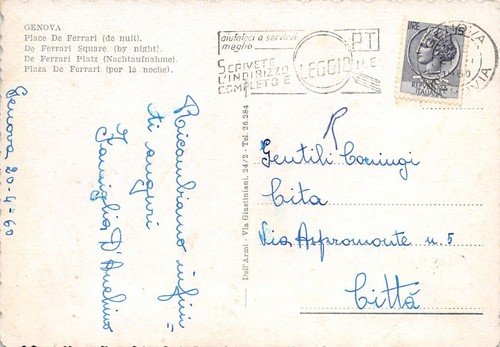 GENOVA
Place De Ferrari (de nuit).
De Ferrari Square (by night).
De Ferrari Platz (Nachtaufnahme).
Plaza De Ferrari (por la noche).
aiutateci a servirvi
meglio
SCRIVETE
L'INDIRIZZO
COMPLETO E
LEGGIBILE
PT
LIRE
GENOVA
Genova 20-4-60
Ricambiamo infini=
ti auguri
Famiglia
Dell'Armi - Via Giustiniani, 24/2 - Tel. 26.284
Gentili Coniugi
Cita
Via Aspromonte n. 5
Città